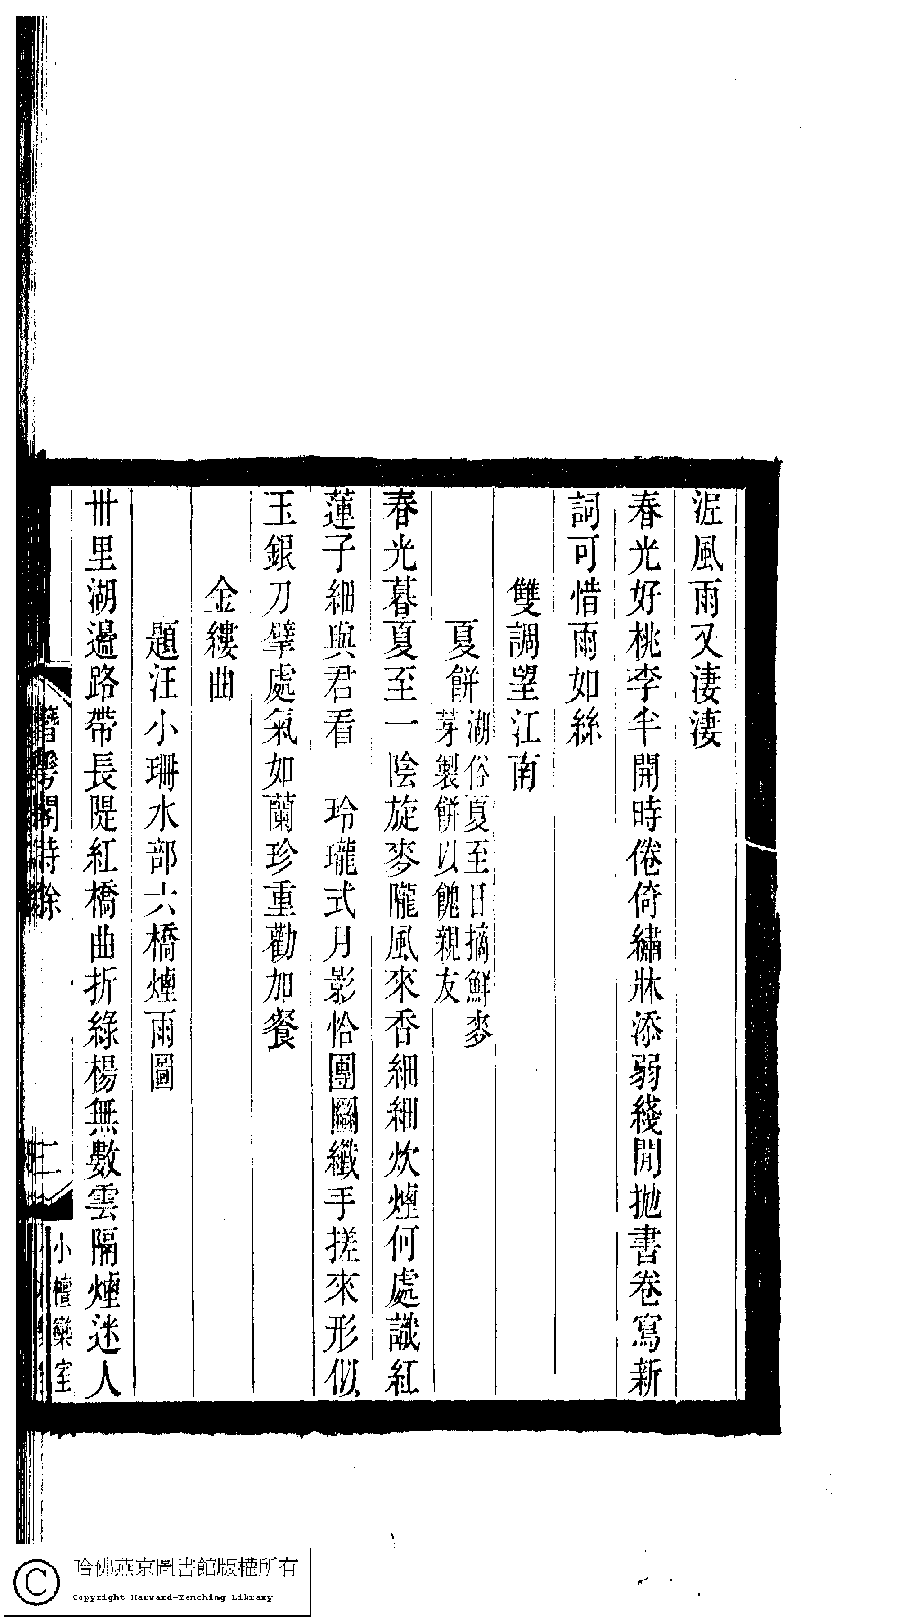 泥風雨又淒淒
春光好桃李半開時倦倚繡牀添弱綫閒抛書卷寫新
詞可惜雨如絲
雙調望江南
夏餅湖俗夏至日摘鮮麥
芽製餅以餽親友
春光暮夏至一陰旋麥隴風來香細細炊煙何處識紅
蓮子細與君看　玲瓏式月影恰團圞纖手搓來形似
玉銀刀擘處氣如蘭珍重勸加餐
金縷曲
題汪小珊水部六橋煙雨圖
卅里湖邊路帶長隄紅橋曲折綠楊無數雲隔煙迷人
閣詩餘
二
小檀欒室
哈佛燕京圖書館版權所有
Copyright Harvard-Yenching Library